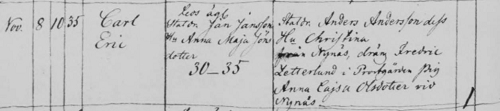 Nov. 8 10 35 Carl Eric
Leos äga
Statdr. Jan Jansson
Hu Anna Maja Jöns
dotter
30-35
Statdr. Anders Andersson dess
Hu Christina
Nynäs, dräng Fredric
Zetterlund i Prestgården Pig
Anna Cajsa Olsdotter vid
Nynäs.